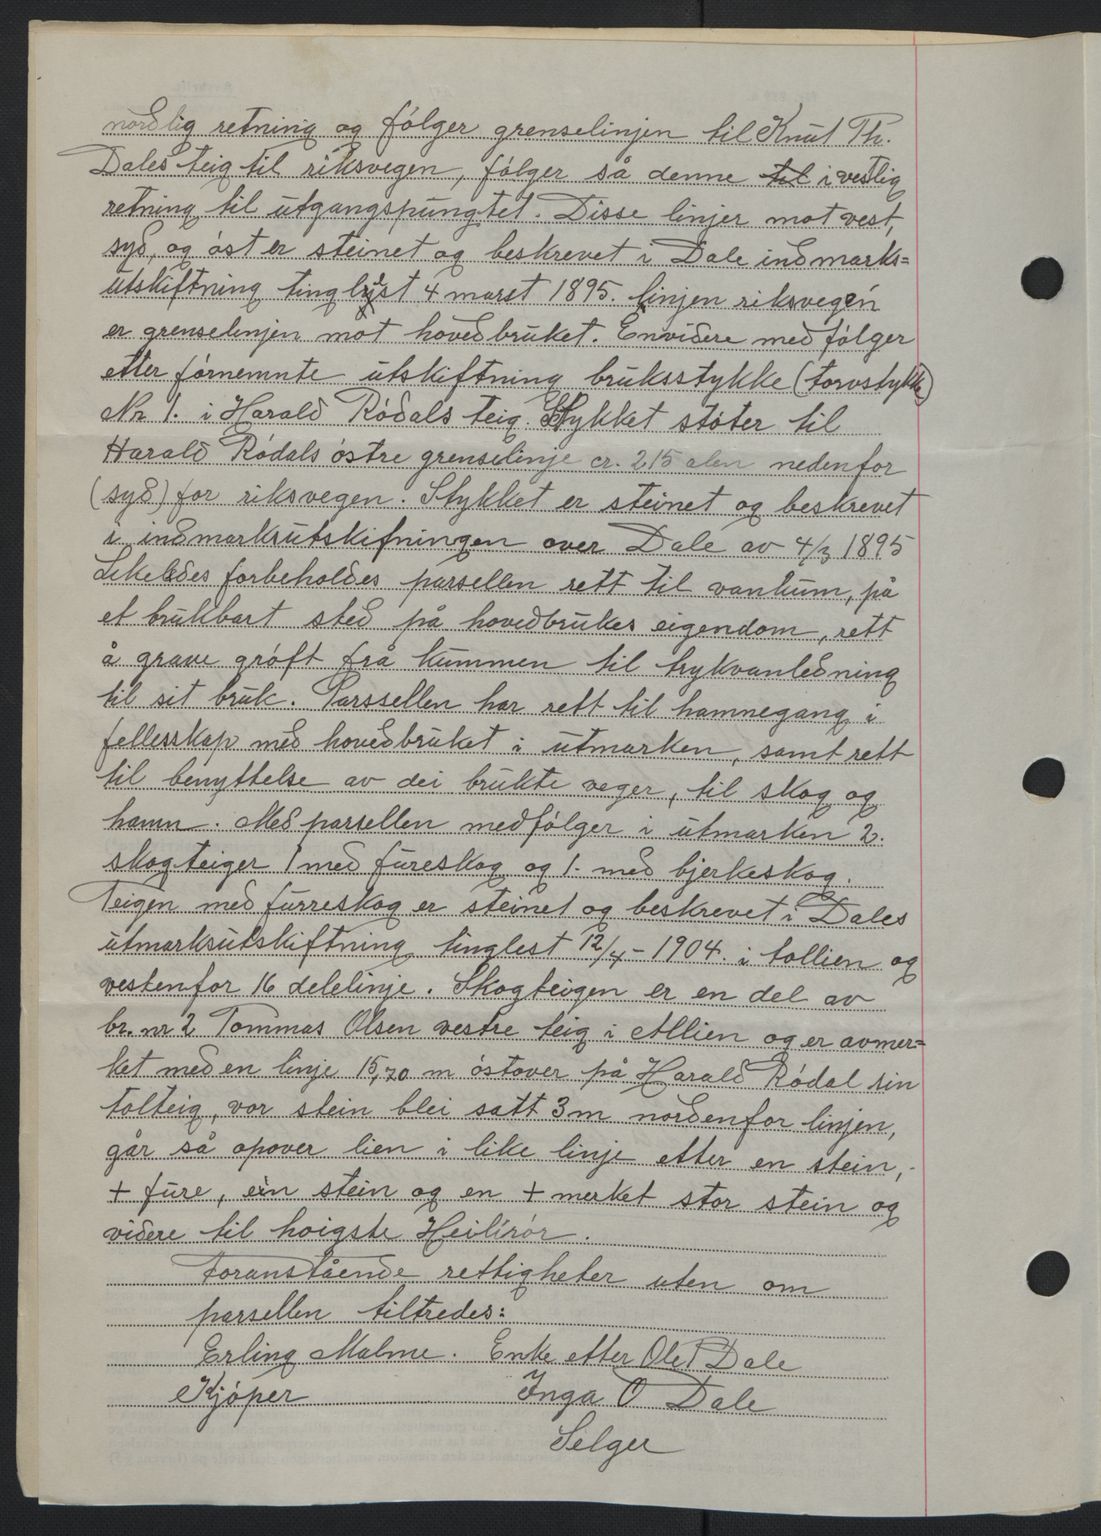 nordlig retning og følger grenselinjen til Knut Th.
Dales teig til riksvegen, følger så denne til i vestlig
retning til utgangspungtet. Disse linjer mot vest,
syd, og øst er steinet og beskrevet i Dale indmarks=
utskiftning tinglyst 4 marst 1895. Linjen riksvegen
er grenselinjen mot hovedbruket. Envidere medfølger
etter fórnemnte utskiftning bruksstykke (torvstykke)
Nr 1. i Harald Ródals teig. Stykket støter til
Harald Ródals óstre grenselinje cr. 215 alen nedenfor
(syd) for riksvegen. Stykket er steinet og beskrevet
i indmarkutskifningen over Dale av 4/3 1895
Likeledes forbeholdes parsellen rett til vankum, på
et brukbart sted på hovedbrukes eigendom, rett
å grave gróft frå kummen til trykvanledning
til sit bruk. Parssellen har rett til hamnegang i
fellesskap med hovedbruket i utmarken, samt rett
til benyttelse av dei brukte veger, til skog og
hamn. Med parsellen medfølger i utmarken 2.
skogteiger 1 med fureskog og 1. med bjerkeskog.
Teigen med furreskog er steinet og beskrevet i Dales
utmarksutskiftning tinglest 12/4 - 1904. i tollien og
vestenfor 16 delelinje. Skogteigen er en del av
br. nr 2 Tommas Olsen vestre teig i Allien og er avmer=
ket med en linje 15,70 m óstover på Harald Ródal sin
tolteig, vor stein blei satt 3 m nordenfor linjen,
går så opover lien i like linje etter en stein,
+ fure, ein stein og en + merket stor stein og
videre til hoigste Heilirór.
Foranstående rettigheter uten om
parsellen tiltredes:
Erling Malme. Enke etter Ole P Dale
Kjóper Inga O Dale
Selger